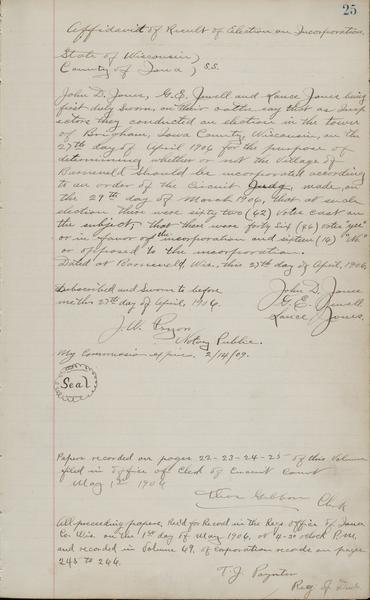 25
Affidavit of Result of Election on Incorporation
State of Wisconsin)
County of Iowa) S.S.
John D. Jones, G.E. Jewell and Lance Jones being
first duly Sworn, on their oaths say that as Insp
ectors they conducted an election in the town
of Brigham, Iowa County, Wisconsin, on the
27th day of April 1906 for the purpose of
determining whether or not the Village of
Barneveld should be incorporated according
to an order of the Circuit Judg, made on
the 29th day of March 1906, that at such
election there were sixty two (62) votes cast on
the subject, that there were forty six (46) votes "yes"
or in favor of the incorporation and sixteen (16) "No"
or opposed to the incorporation.
Dated at Barneveld, Wis. this 27th day of April, 1906.
Subscribed and Sworn to before
me this 27th day of April, 1906.
John D. Jones
G. E. Jewell
Lance Jones.
J. W. Pryor
Notary Public.
My Commission expires 2/14/09.
Seal
Papers recorded on pages 22-23-24-25 of this Volume
filed in office of Clerk of Circuit Court
May 1st 1906
Clerk
All preceeding papers, Rec'd for Record in the Regs office of Iowa
Co. Wis. on the 1st day of May 1906, at 4-30 o'clock P.M.
and recorded in Volume 69, of Corporation records on pages
245 to 246.
T. J. Paynter
Reg. of Deeds